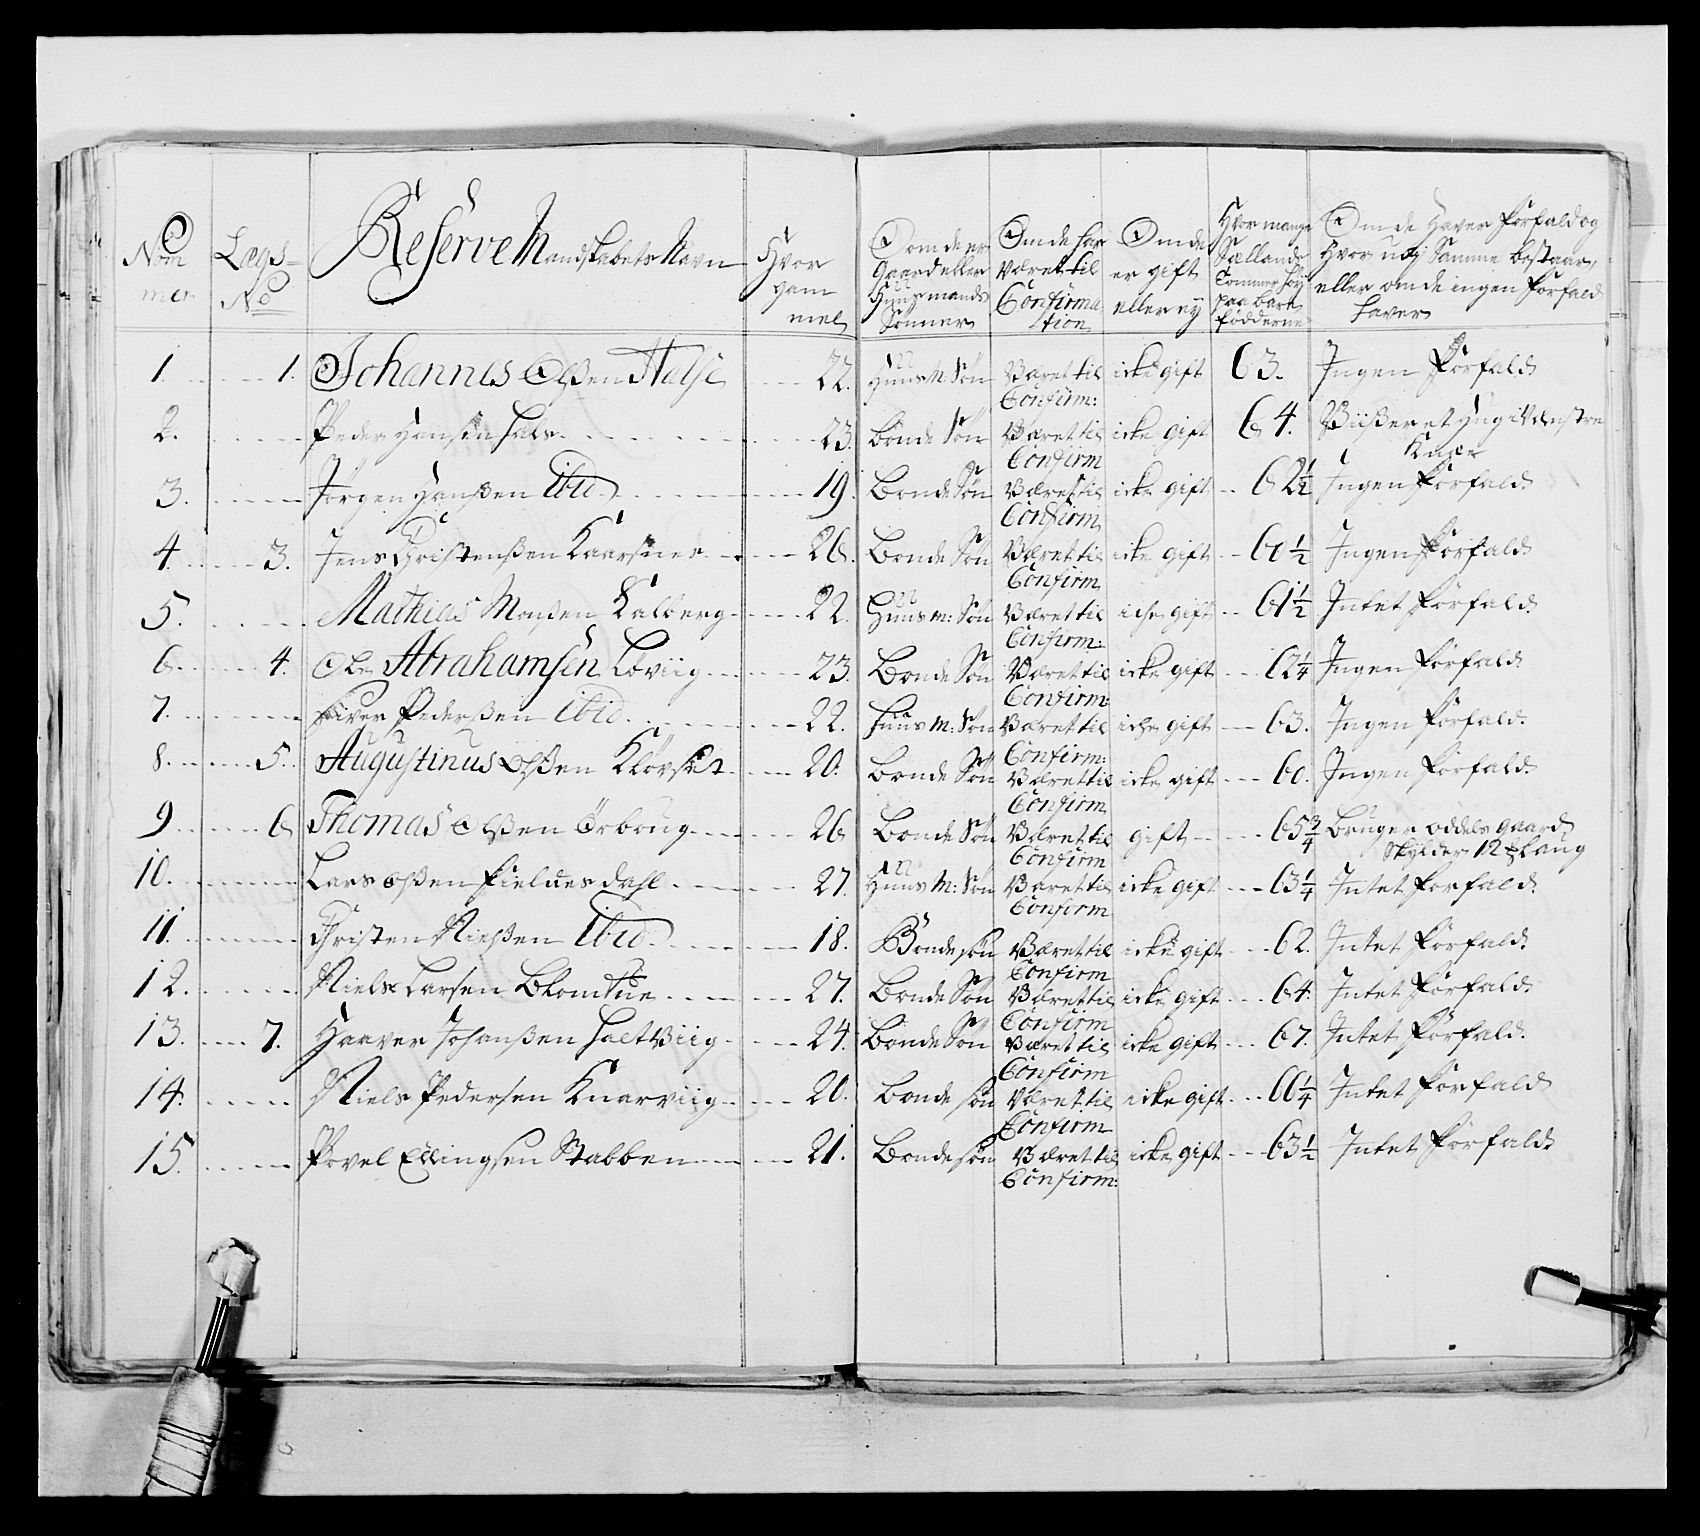 Nom mer
Lægs- No
Reserve Mandskabets Navn
Hvor gam mel
Om de er Gaard eller Huusmands Sønner
Om de har Været til Confirma tion
Om de er gift eller ey
Hvor mange Sællands Tommer høy paa bare fødderne
Om de Haver Forfald og Hvor udj Samme bestaar, eller om de ingen Forfald haver
1. 1. Johannes Olßen Halse 22. Huus M: Søn Været til Confirm: icke gift 63. Ingen Forfald
2. Peder Hansen Hals 23. Bonde Søn Været til Confirm icke gift 64. et Hug i Venstre Knæe
3. Jörgen Hanßen Ibid 19. Bonde Søn Været til Confirm icke gift 62½ Ingen Forfald
4. 3. Jens Christenßen 26. Bonde Søn Været til Confirm icke gift 60½ Ingen Forfald
5. Mathias Monßen Kalberg 22. Huus m: Søn Været til Confirm: icke gift 61½ Intet Forfald
6. 4. Ole Abrahamsen Loviig 23. Bonde Søn Været til Confirm: icke gift 62¼ Ingen Forfald
7. Siver Pederßen Ibid. 22. Huus M: Søn Været til Confirm: icke gift 63. Ingen Forfald.
8. 5. Augustinus Olßen 20. Bonde Søn Været til Confirm icke gift 60. Ingen Forfald.
9. 6 Thomas Olßen 26 Bonde Søn Været til Confirm gift 65¾ Bruger oddels gaard Skylder 12 Laug
10. Lars Olßen Fieldesdahl 27. Huus M: Søn Været til Confirm icke gift 63¼ Intet Forfald
11. Christen Nielßen Ibid. 18. Bonde søn Været til Confirm icke gift 62. Intet Forfald
12. Niels Larsen Blomtue 27. Bonde Søn Været til Confirm icke gift 64. Intet Forfald.
13. 7. Haaver Johanßen Saltviig 24. Bonde Søn Været til Confirm icke gift 67. Intet Forfald.
14. Niels Pedersen Knarviig 20. Bonde søn Været til Confirm icke gift 66¼ Intet Forfald
15. Povel Ellingsen Stabben 21. Bonde søn Været til Confirm: icke gift 63½ Intet Forfald